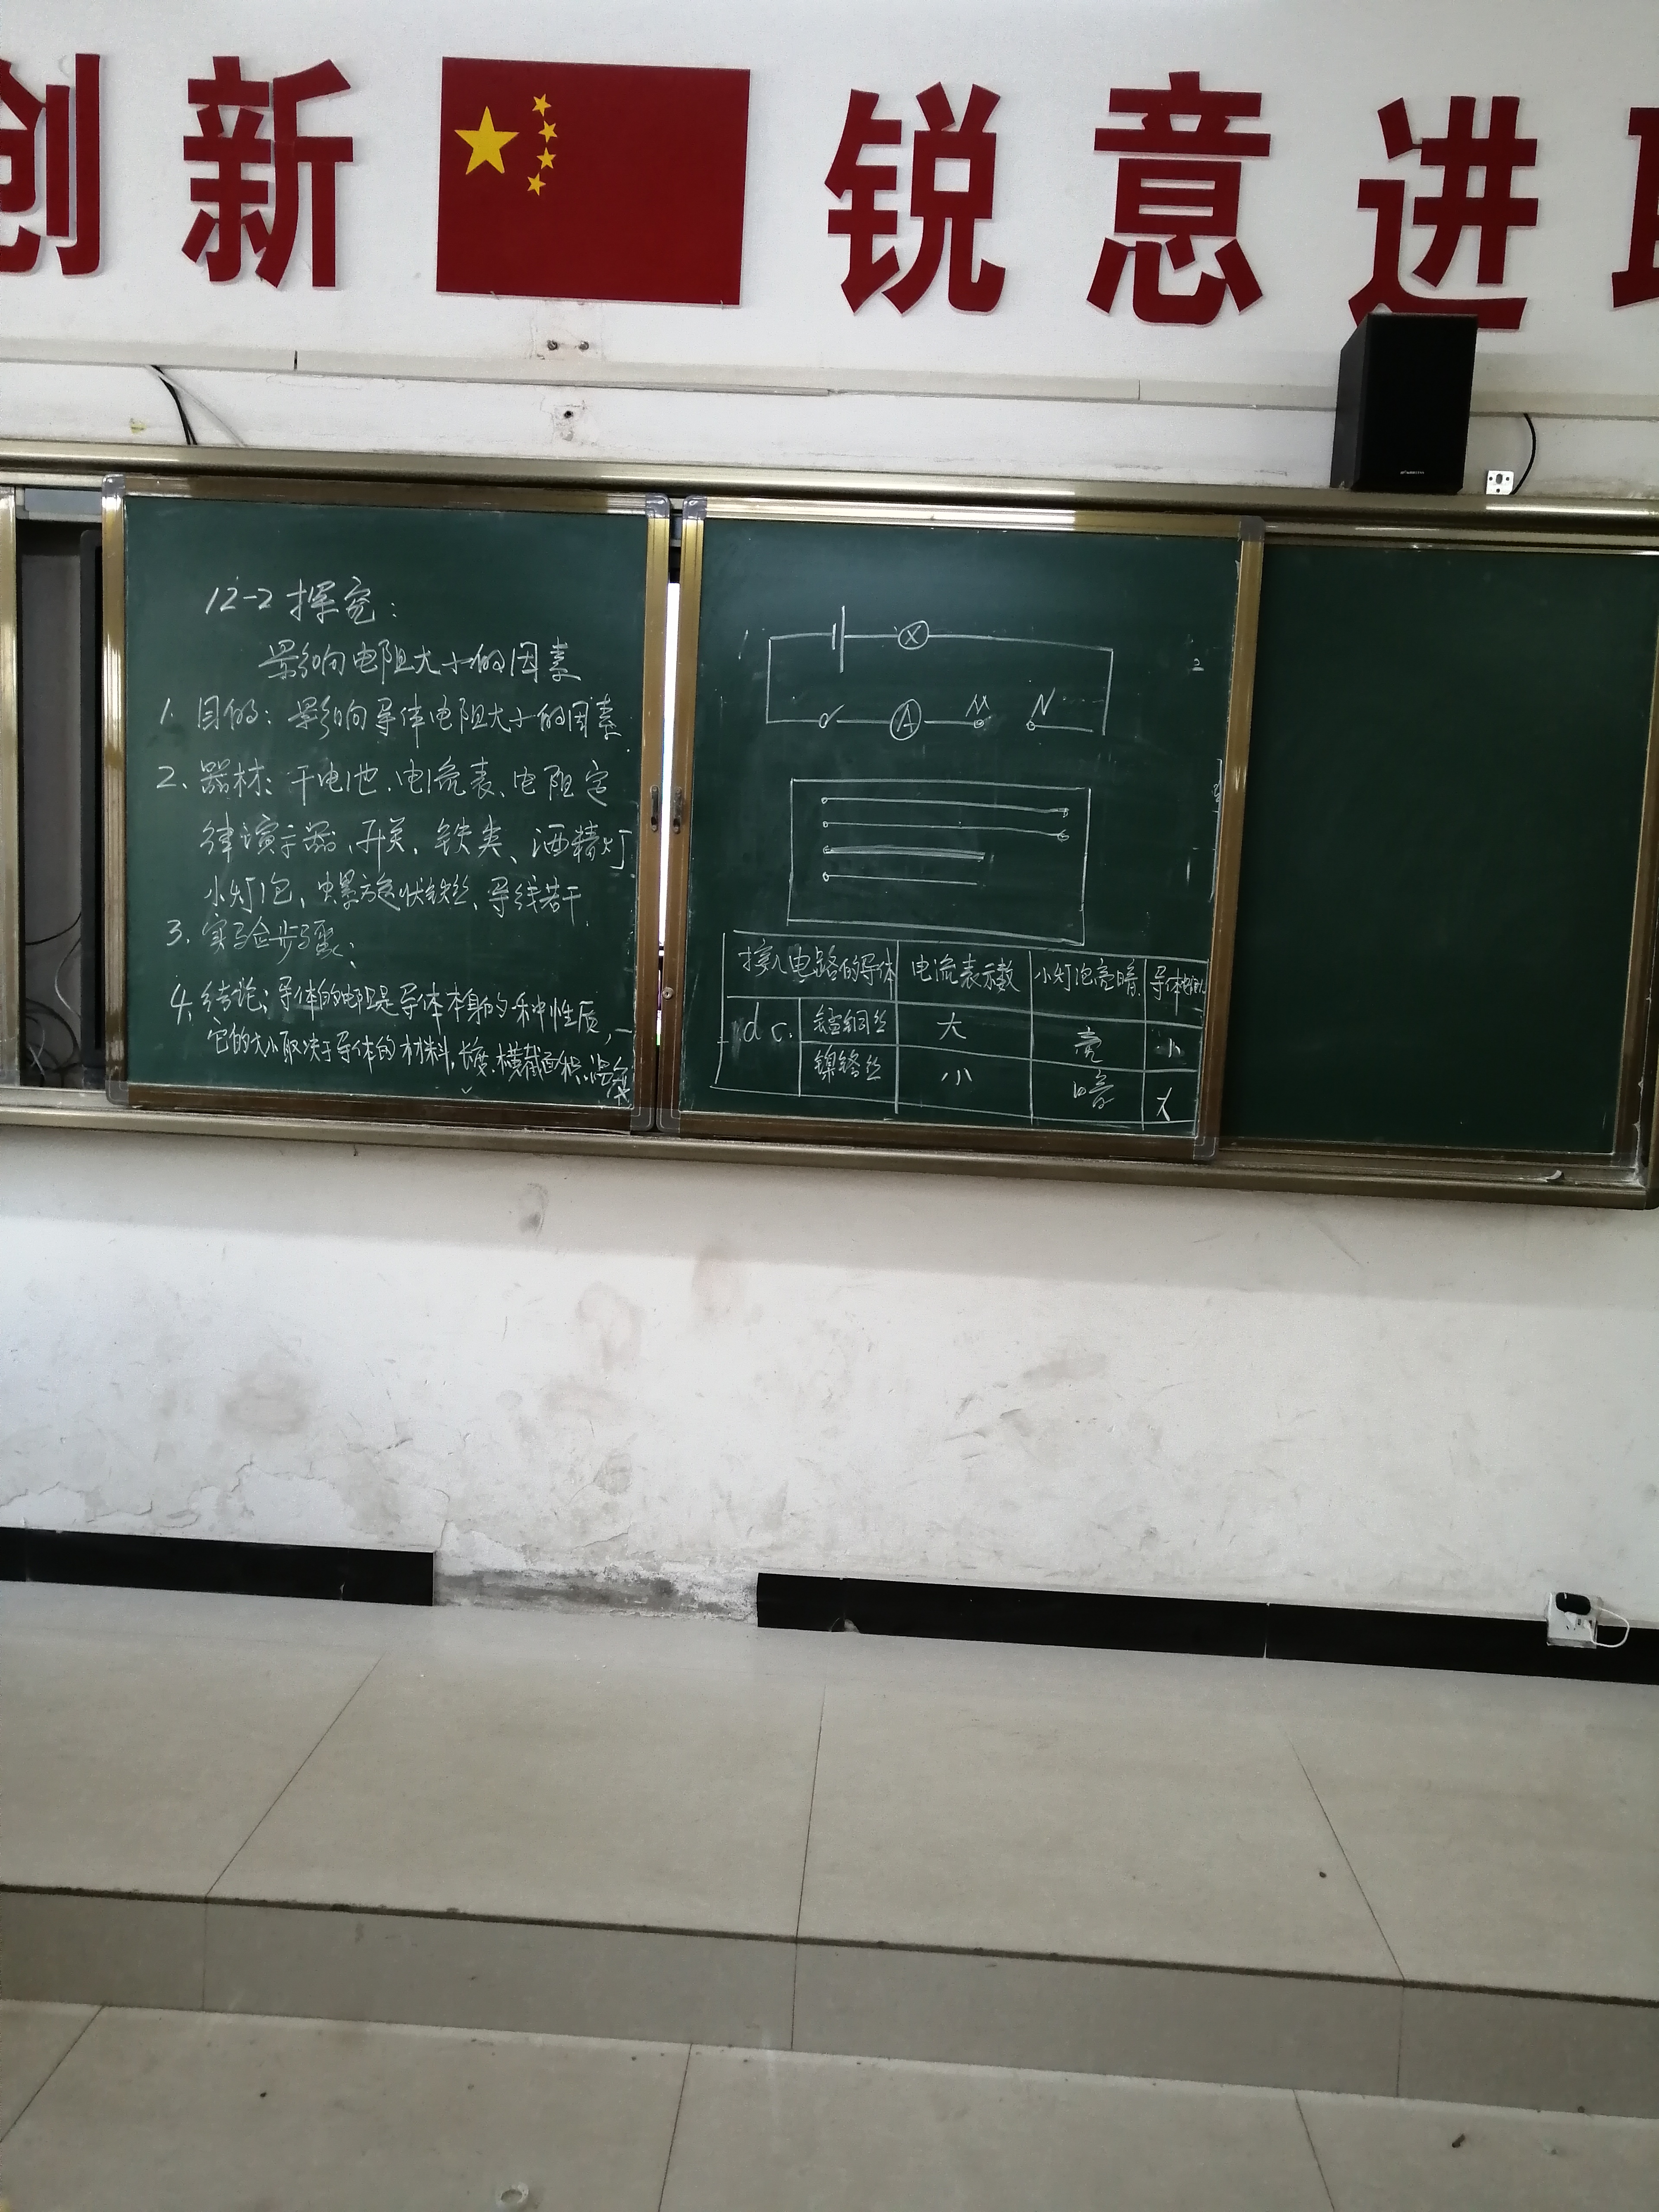 创新 锐意进
12-2 探究:
影响电阻大小的因素
1. 目的: 影响导体电阻大小的因素
2、器材: 干电池、电流表、电阻定
律演示器、开关、铁类、酒精灯
小灯泡、螺旋状铁丝、导线若干
3. 实验步骤:
4. 结论: 导体的电阻是导体本身的一种性质,
它的大小取决于导体的材料、长度、横截面积、温度
A M N
接入电路的导体 电流表示数 小灯泡亮暗 导体电阻
d c. 锰铜丝 大 亮 小
镍铬丝 小 暗 大